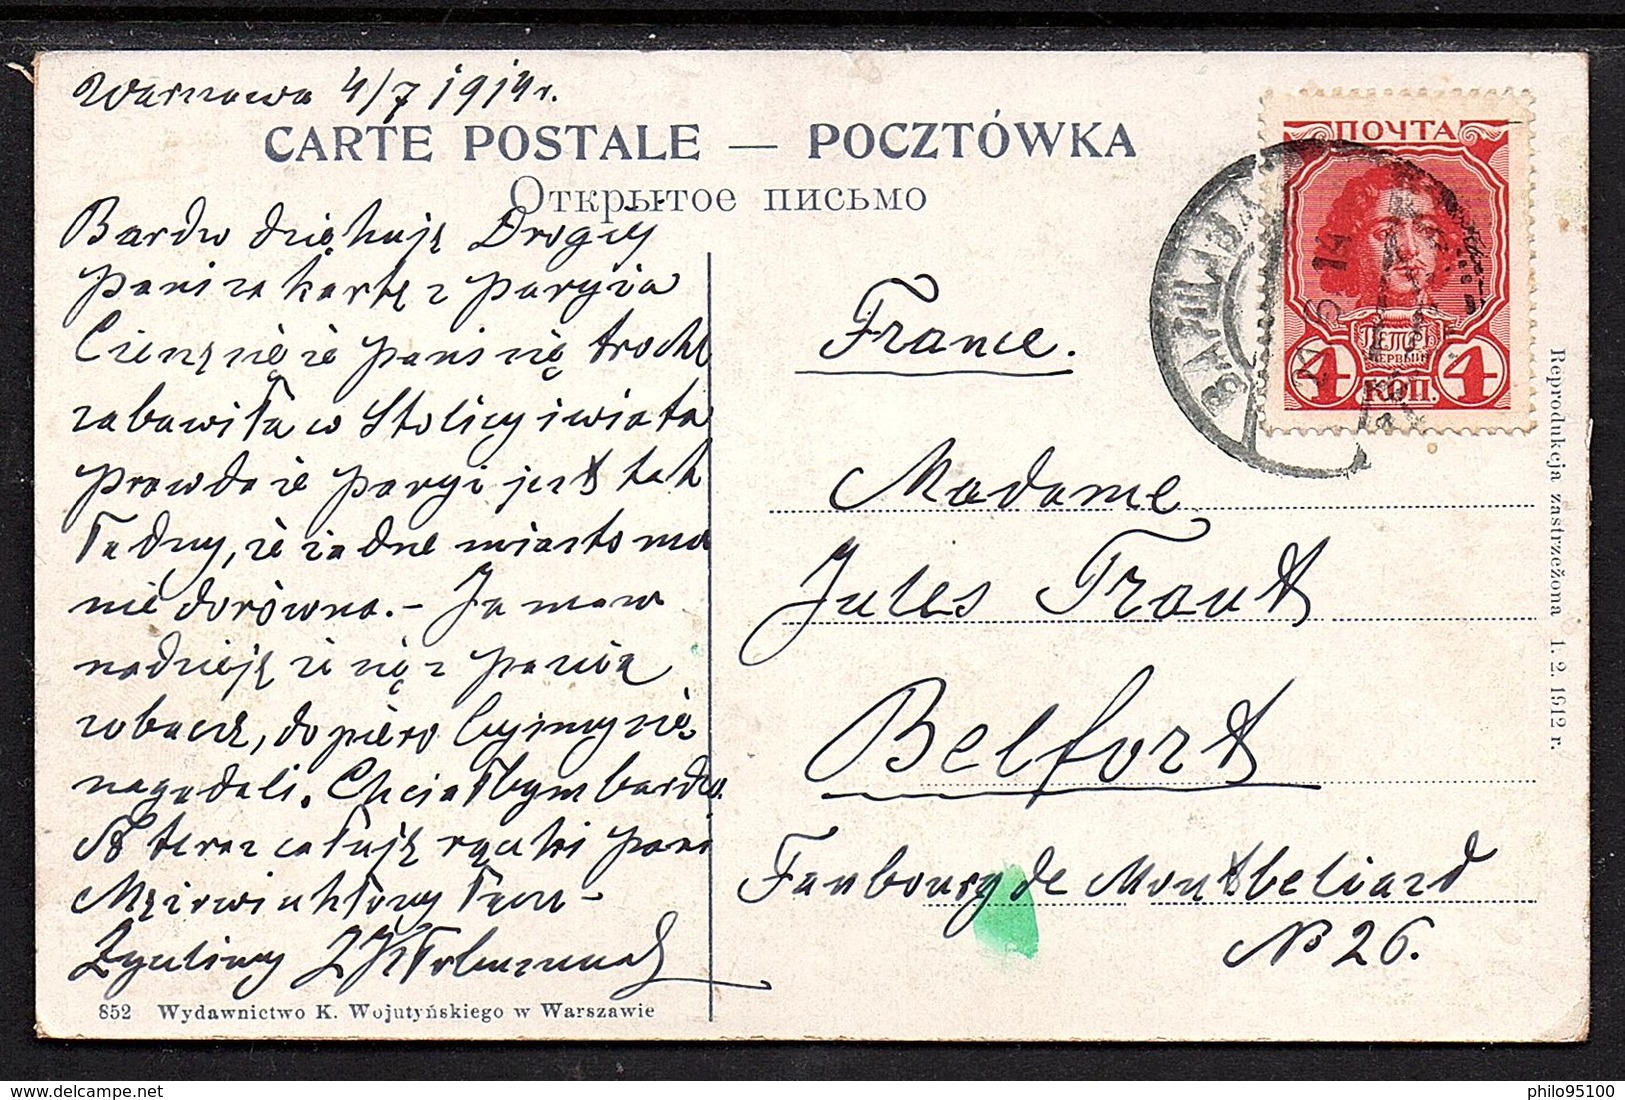 Warszawa 4/7 1914 r.
CARTE POSTALE — POCZTÓWKA
Открытое письмо
Bardzo dziękuję Drogiej
Pani za kartę z Paryża
Cieszę się że Pani się trochę
zabawiła w Stolicy świata
Prawda że Paryż jest tak
ładny, że żadne miasto mu
nie dorówna. – Ja mam
nadzieję że się z Panią
zobaczę, dopiero byśmy się
nagadali. Chciałbym bardzo.
A teraz całuję rączki Pani
Mężowi ukłony łączę –
Życzliwy
852 Wydawnictwo K. Wojutyńskiego w Warszawie
ПОЧТА
ПЕТРЪ
ПЕРВЫЙ
4 КОП. 4
ВАРШАВА
14
France.
Madame
Jules Traut
Belfort
Faubourg de Montbeliard
No 26.
Reprodukcja zastrzeżona 1. 2. 1912 r.
delcampe.net
philo95100